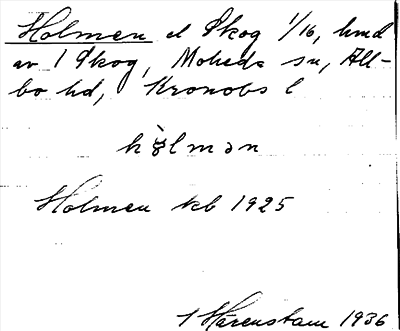 Holmen el Skog 1/16, hmd
av 1 Skog, Moheda sn, All-
bo hd, Kronobs l
hòlmən
Holmen kb 1925
1 Hårenstam 1936